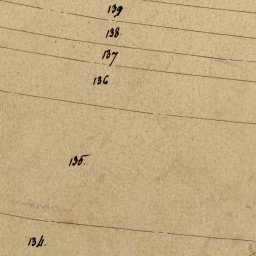 139
138
137
136
135.
134.